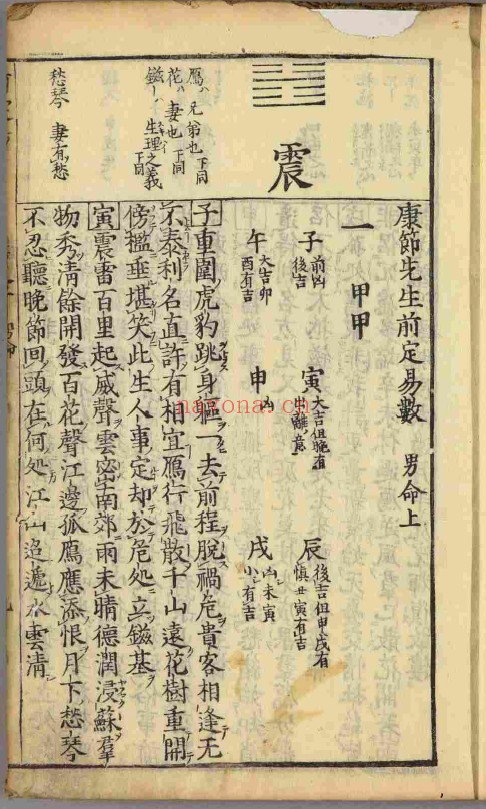 康節先生前定易數 男命上
一 甲甲
子 前凶後吉
寅 大吉但晚有
辰 後吉但申戌有慎丑寅有吉
午 大吉卯酉有吉
申 凶
戌 凶未寅小有吉
震
子重圍虎豹跳身軀一去前程脫禍危貴客相逢无
不泰利名直許有相宜鴈行飛散千山遠花樹重開
傍檻垂堪笑此生人事定却於危処立鎡基
寅震雷百里起威聲雲密南郊雨未晴德潤浸蘇羣
物秀清餘開發百花聲江邊孤鴈應添恨月下愁琴
不忍聽晚節回頭在何処江山迢遞水雲清
鴈ハ兄弟也下同
花ハ妻也下同
鎡ーハ生理之義下同
愁琴 妻有愁
nayona.cn